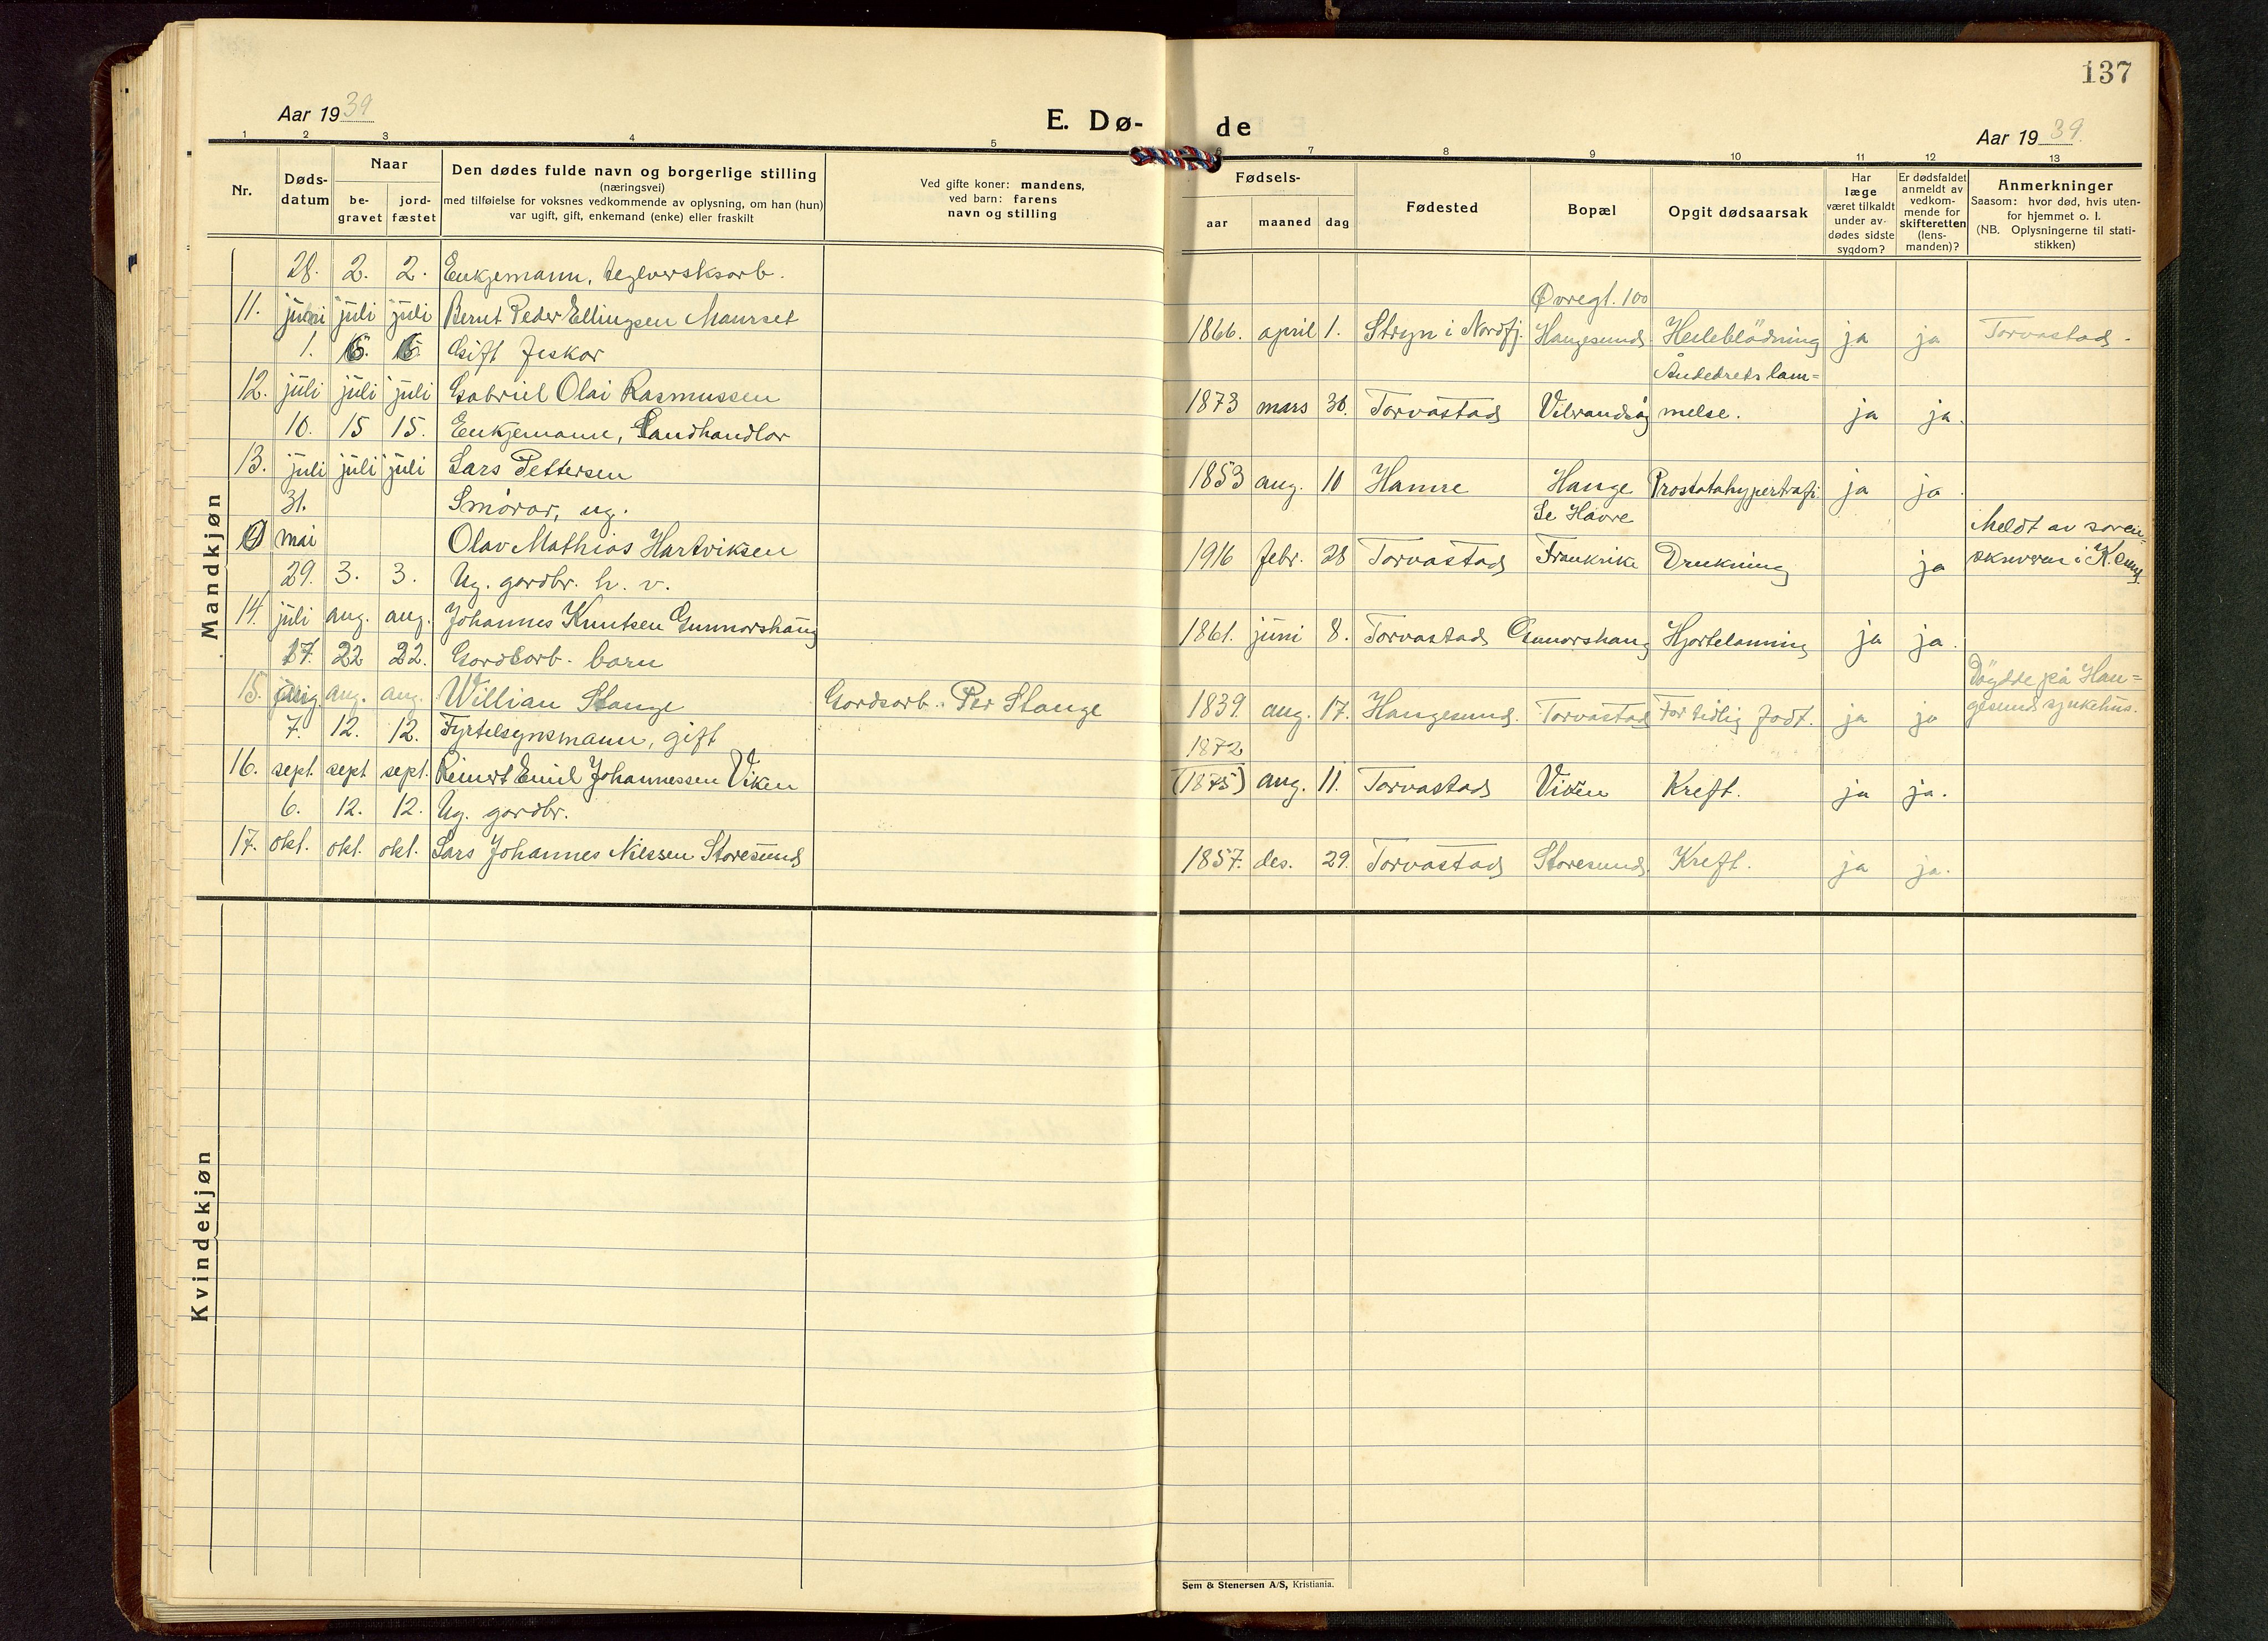 137
Aar 1939
E. Dø-
de
Aar 1939.
1 2 3 4 5 6 7 8 9 10 11 12 13
Nr.
Døds-
datum
Naar
be-
gravet
jord-
fæstet
Den dødes fulde navn og borgerlige stilling
(næringsvei)
med tilføielse for voksnes vedkommende av oplysning, om han (hun)
var ugift, gift, enkemand (enke) eller fraskilt
Ved gifte koner: mandens,
ved barn: farens
navn og stilling
Fødsels-
aar maaned dag
Fødested
Bopæl
Opgit dødsaarsak
Har
læge
været tilkaldt
under av-
dødes sidste
sygdom?
Er dødsfaldet
anmeldt av
vedkom-
mende for
skifteretten
(lens-
manden)?
Anmerkninger
Saasom: hvor død, hvis uten-
for hjemmet o. l.
(NB. Oplysningerne til stati-
stikken)
Mandkjøn
28. 2. 2. Enkjemann, teglverksarb.
11. juni juli juli Bernt Peder Ellingsen Maurset
Øvregt. 100
1866. april 1. Stryn i Nordfj. Haugesund Heileblödning ja ja Torvastad.
1. 6. 6. Gift fiskar
12. juli juli juli Gabriel Olai Rasmussen
Åndedrets lam=
1873 mars 30. Torvastad melse. ja ja.
10. 15 15. Enkjemann, Landhandlar
13. juli juli juli Lars Pettersen
1853 aug. 10 Hamre Hauge Prostatahypertrofi ja ja.
31. Smörar, ug.
mai Olav Mathias Hartviksen
Le Havre
1916 febr. 28 Torvastad Frankrike Drukning ja
Meldt av soren=
skrivaren i K.sung
29. 3. 3. Ug. gardbr. h. v.
14. juli aug. aug. Johannes Knutsen Gunnarshaug
1861. juni 8. Torvastad Gunnarshaug Hjartelamning ja ja.
17. 22 22. Gardsarb. barn
15. aug. aug. aug. Willian Stange Gardsarb. Per Stange
1839. aug. 17. Haugesund. Torvastad For tidlig födt. ja ja
Döydde på Hau=
gesund sjukehus.
7. 12. 12. Fyrtilsynsmann, gift
16. sept. sept sept. Reinert Emil Johannessen Viken
1872
(1875) aug. 11. Torvastad Viken Kreft. ja ja.
6. 12. 12. Ug. gardbr.
17. okt. okt. okt. Lars Johannes Nilssen Storesund
1857. des. 29. Torvastad Storesund. Kreft. ja ja.
Kvindekjøn
Sem & Stenersen A/S, Kristiania.